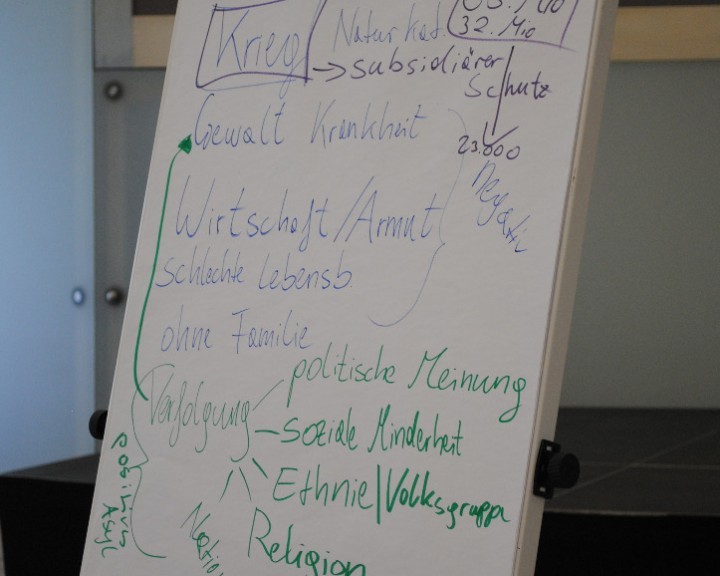 Krieg Naturkat.
32. Mio
→ subsidiärer
Schutz
Gewalt Krankheit
23.000
Negativ
Wirtschaft/Armut
Schlechte Lebensb.
ohne Familie
Verfolgung
politische Meinung
soziale Minderheit
Ethnie/Volksgruppe
Religion
Natio
positives
Asyl